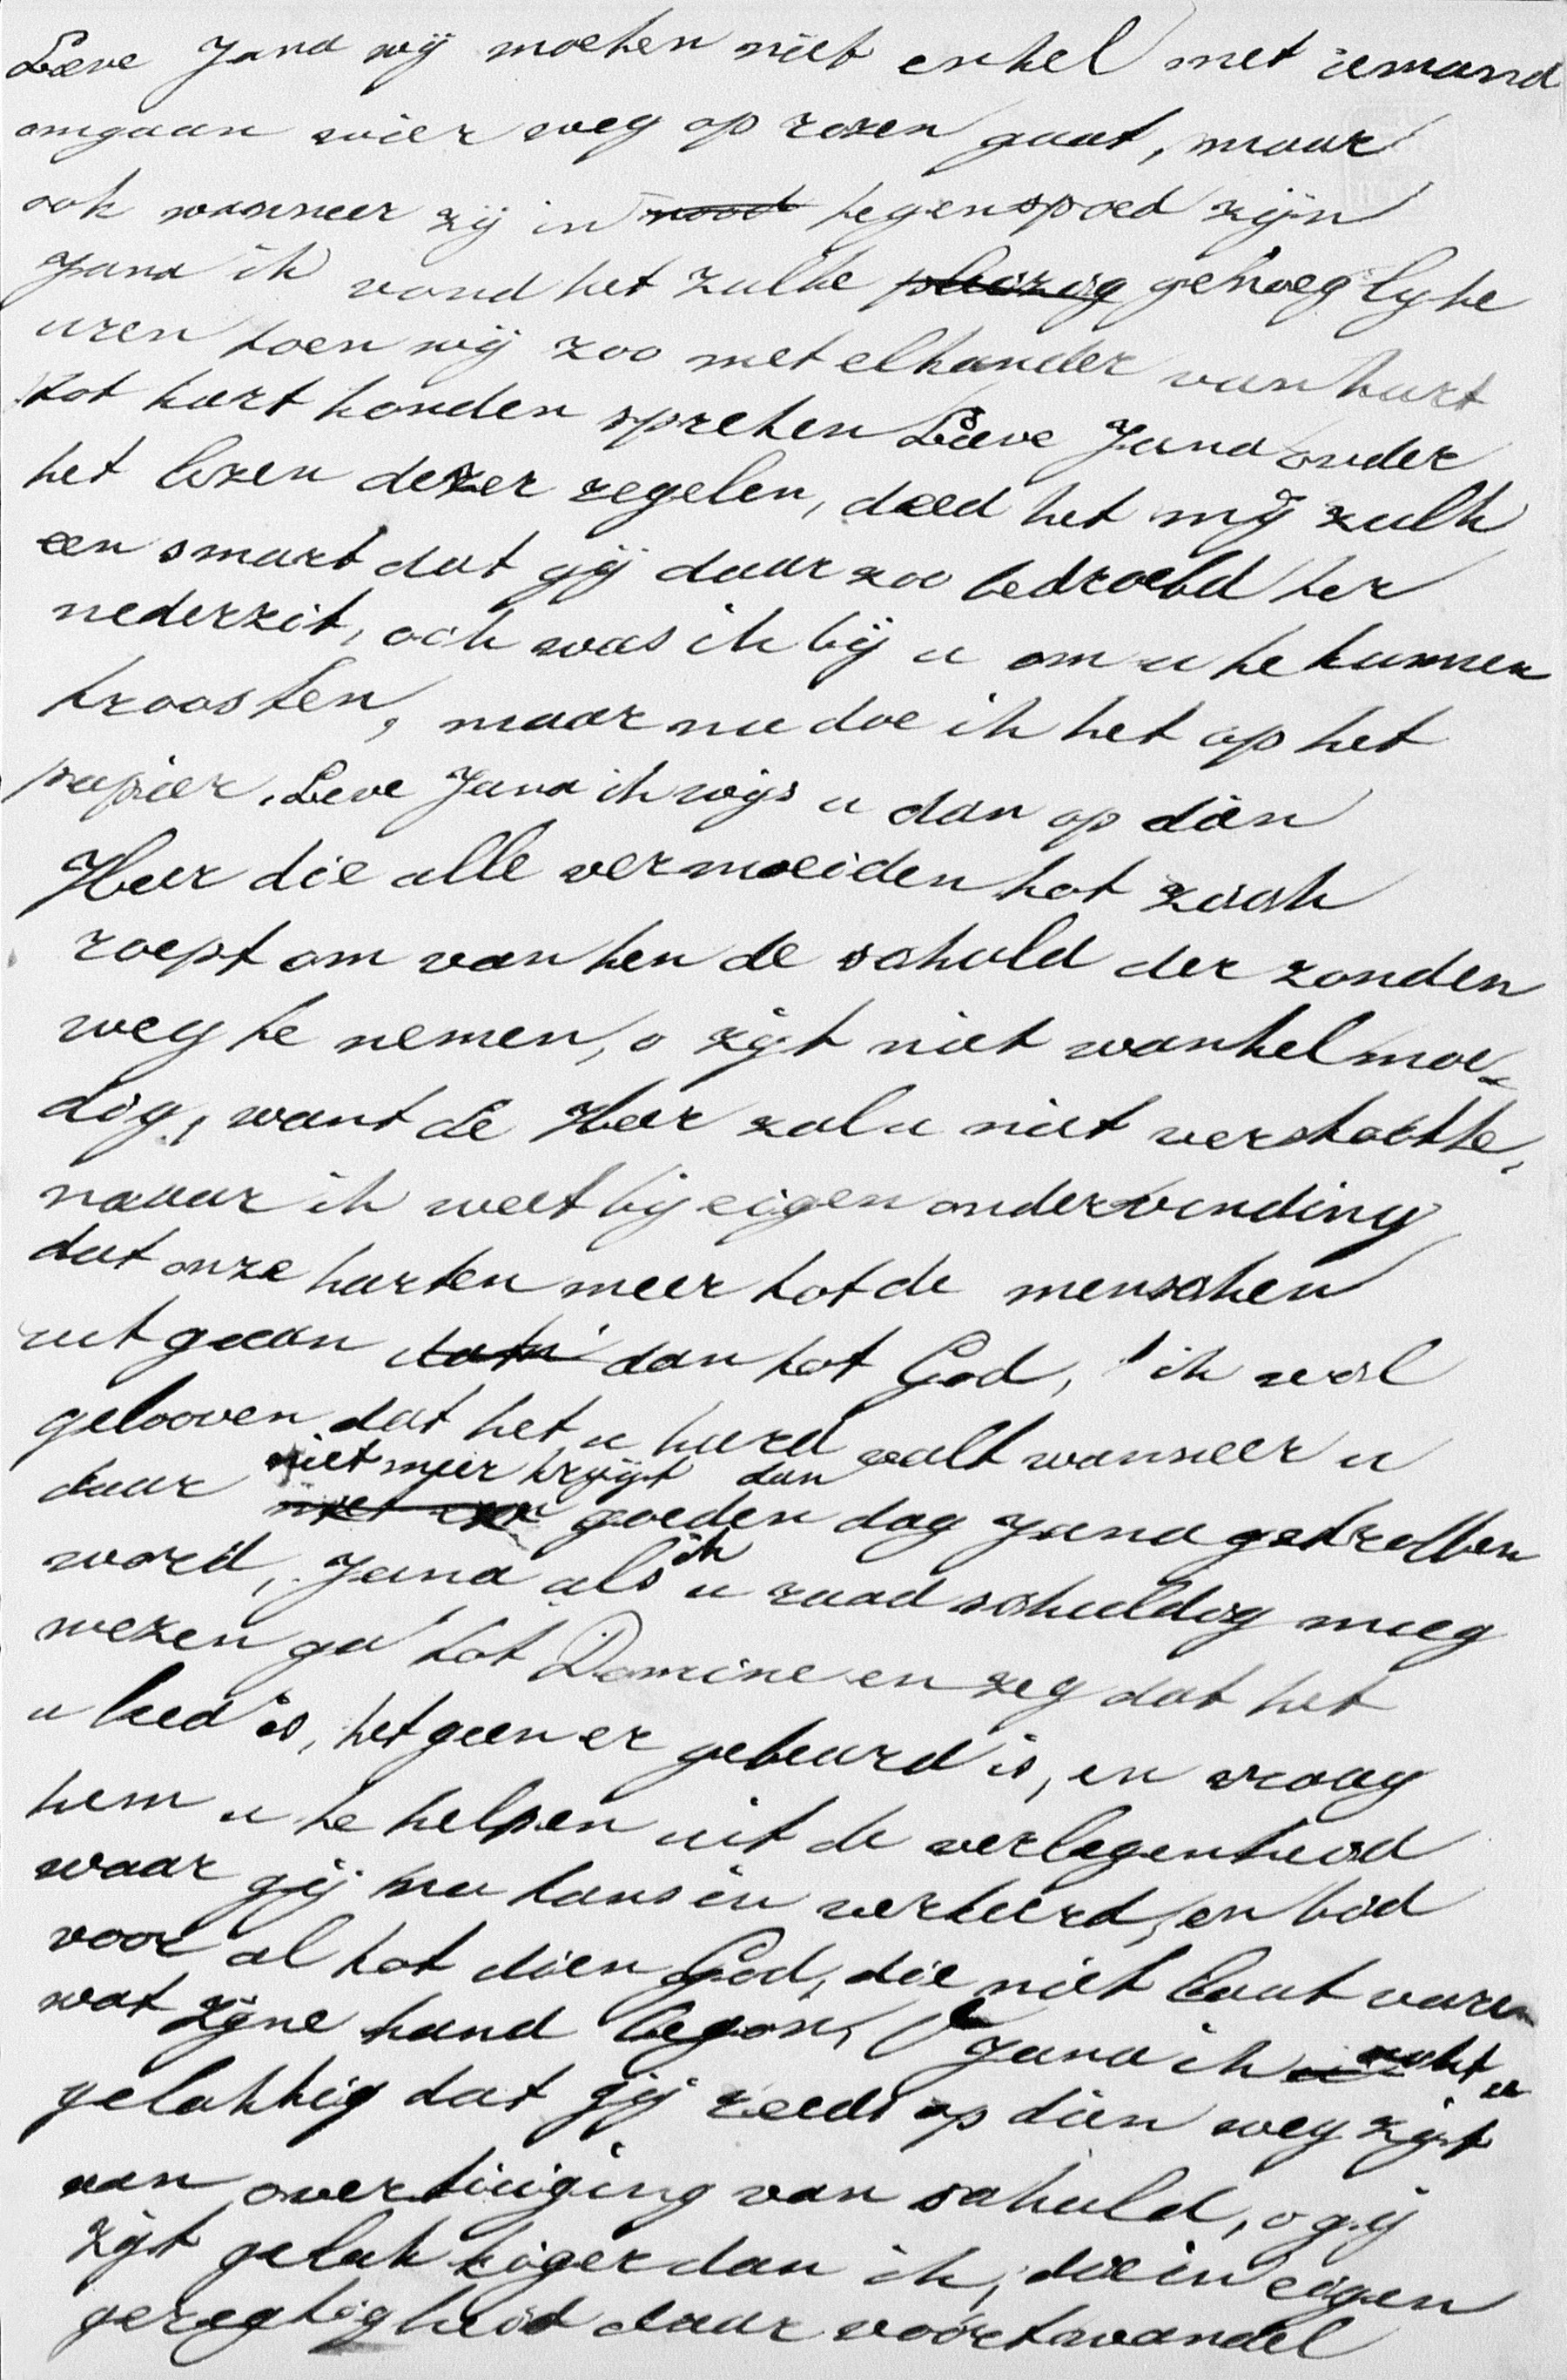 Lieve Jana wij moeten niet enkel met iemand
omgaan wier weg op rozen gaat, maar
ook wanneer zij in nood tegenspoed zijn
Jana ik vond het zulke pleizirig genoeglyke
uren toen wij zoo met elkander van hart
tot hart konden spreken Lieve Jana onder
het lezen dezer regelen, deed het mij zulk
een smart dat gij daar zoo bedroefd ter
nederzit, och was ik bij u om u te kunnen
troosten, maar nu doe ik het op het
papier. Lieve Jana ik wijs u dan op dien
Heer die alle vermoeiden tot zich
roept om van hen de schuld der zonden
weg te nemen, o zijt niet wankelmoe-
dig, want de Heer zal u niet verstootte,
naaar ik weet bij eigen ondervinding
dat onze harten meer tot de menschen
uitgaan dan tot God, ik wil
gelooven dat het u hard valt wanneer u
daar niet meer krijgt dan goeden dag Jana getroffen
word, Jana als ik u raad schuldig mag
wezen ga tot Domine en zeg dat het
u leed is, hetgeen er gebeurd is, en vraag
hem u te helpen uit de verlegenheid
waar gij nu thans in verkeerd, en bid
voor al tot dien God, die niet laat varen
wat zijne hand begon, Jana ik acht u
gelukkig dat gij reeds op dien weg zijt
van overtuiging van schuld, o gij
zijt gelukkiger dan ik, die in eigen
geregtigheid daar voortwandel